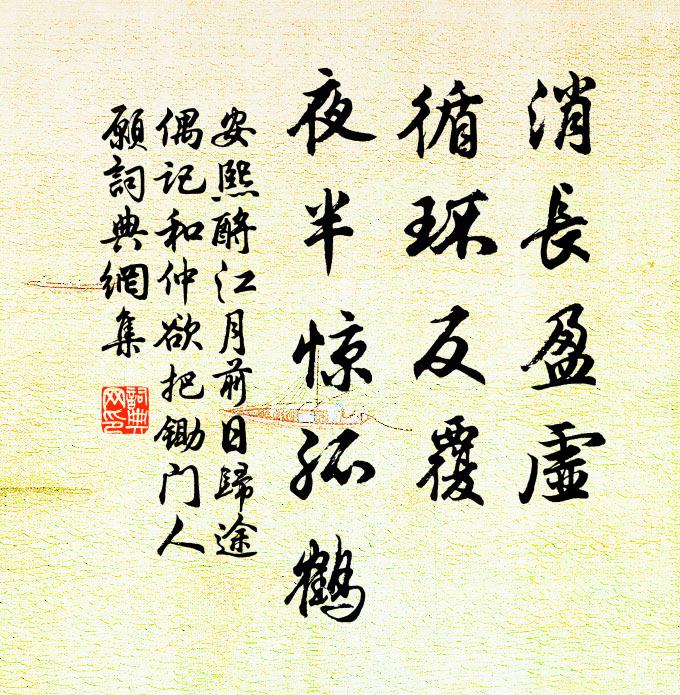 消長盈虛
循环反覆
夜半惊孤鶴
安熙酹江月前日歸途
偶记和仲欲把锄门人
願詞典網集
詞典网印